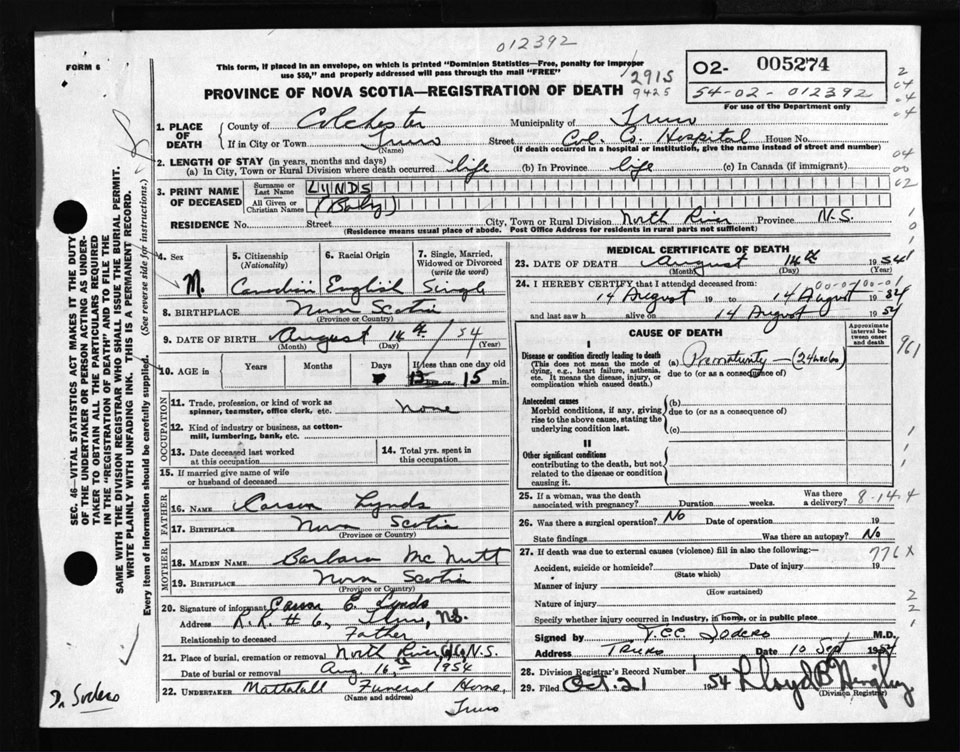 012392
FORM 6
This form, if placed in an envelope, on which is printed "Dominion Statistics—Free, penalty for improper
use $50," and properly addressed will pass through the mail "FREE"
2915
9425
O2- 005274
54-02-012392
For use of the Department only
PROVINCE OF NOVA SCOTIA—REGISTRATION OF DEATH
1. PLACE OF DEATH County of Colchester Municipality of Truro
If in City or Town Truro (Name) Street Col. Co. Hospital House No.
(If death occurred in a hospital or institution, give the name instead of street and number)
2. LENGTH OF STAY (in years, months and days)
(a) In City, Town or Rural Division where death occurred life (b) In Province life (c) In Canada (if immigrant)
3. PRINT NAME OF DECEASED Surname or Last Name LYNDS
All Given or Christian Names (Baby)
RESIDENCE No. Street City, Town or Rural Division North River Province N.S.
(Residence means usual place of abode. Post Office Address for residents in rural parts not sufficient)
4. Sex M.
5. Citizenship (Nationality) Canadian
6. Racial Origin English
7. Single, Married, Widowed or Divorced (write the word) Single
8. BIRTHPLACE Nova Scotia
(Province or Country)
9. DATE OF BIRTH August 14th /54
(Month) (Day) (Year)
10. AGE in Years Months Days If less than one day old
hrs. or 15 min.
OCCUPATION
11. Trade, profession, or kind of work as spinner, teamster, office clerk, etc. none
12. Kind of industry or business, as cotton-mill, lumbering, bank, etc.
13. Date deceased last worked at this occupation
14. Total yrs. spent in this occupation
15. If married give name of wife or husband of deceased
FATHER
16. NAME Carson Lynds
17. BIRTHPLACE Nova Scotia
(Province or Country)
MOTHER
18. MAIDEN NAME Barbara McNutt
19. BIRTHPLACE Nova Scotia
(Province or Country)
20. Signature of informant Carson E. Lynds
Address R.R. # 6, Truro, N.S.
Relationship to deceased Father
21. Place of burial, cremation or removal North River, Col. Co. N.S.
Date of burial or removal Aug. 16th 1954
22. UNDERTAKER Mattatall Funeral Home,
(Name and address)
Truro
MEDICAL CERTIFICATE OF DEATH
23. DATE OF DEATH August 14th 1954
(Month) (Day) (Year)
24. I HEREBY CERTIFY that I attended deceased from:
00-0/00-0
14 August 19 to 14 August 1954
and last saw h alive on 14 August 1954
CAUSE OF DEATH
Approximate interval between onset and death
I
Disease or condition directly leading to death
(This does not mean the mode of dying, e.g., heart failure, asthenia, etc. It means the disease, injury, or complication which caused death.)
(a) Prematurity — (24 weeks)
due to (or as a consequence of)
Antecedent causes
Morbid conditions, if any, giving rise to the above cause, stating the underlying condition last.
(b)
due to (or as a consequence of)
(c)
II
Other significant conditions
contributing to the death, but not related to the disease or condition causing it.
25. If a woman, was the death associated with pregnancy? Duration weeks. Was there a delivery?
8-14 4
26. Was there a surgical operation? No Date of operation 19
State findings Was there an autopsy? No
27. If death was due to external causes (violence) fill in also the following:—
776X
Accident, suicide or homicide? (State which) Date of injury 19
Manner of injury
(How sustained)
Nature of injury
Specify whether injury occurred in industry, in home, or in public place
Signed by T.CC Sodero M.D.
Address Truro Date 10 Sept 1954
28. Division Registrar's Record Number
29. Filed Oct. 21 1954 Lloyd B Hingley
(Division Registrar)
961
SEC. 46—VITAL STATISTICS ACT MAKES IT THE DUTY OF THE UNDERTAKER OR PERSON ACTING AS UNDERTAKER TO OBTAIN ALL THE PARTICULARS REQUIRED IN THE "REGISTRATION OF DEATH" AND TO FILE THE SAME WITH THE DIVISION REGISTRAR WHO SHALL ISSUE THE BURIAL PERMIT.
WRITE PLAINLY WITH UNFADING INK. THIS IS A PERMANENT RECORD.
Every item of information should be carefully supplied. (See reverse side for instructions.)
Dr Sodero